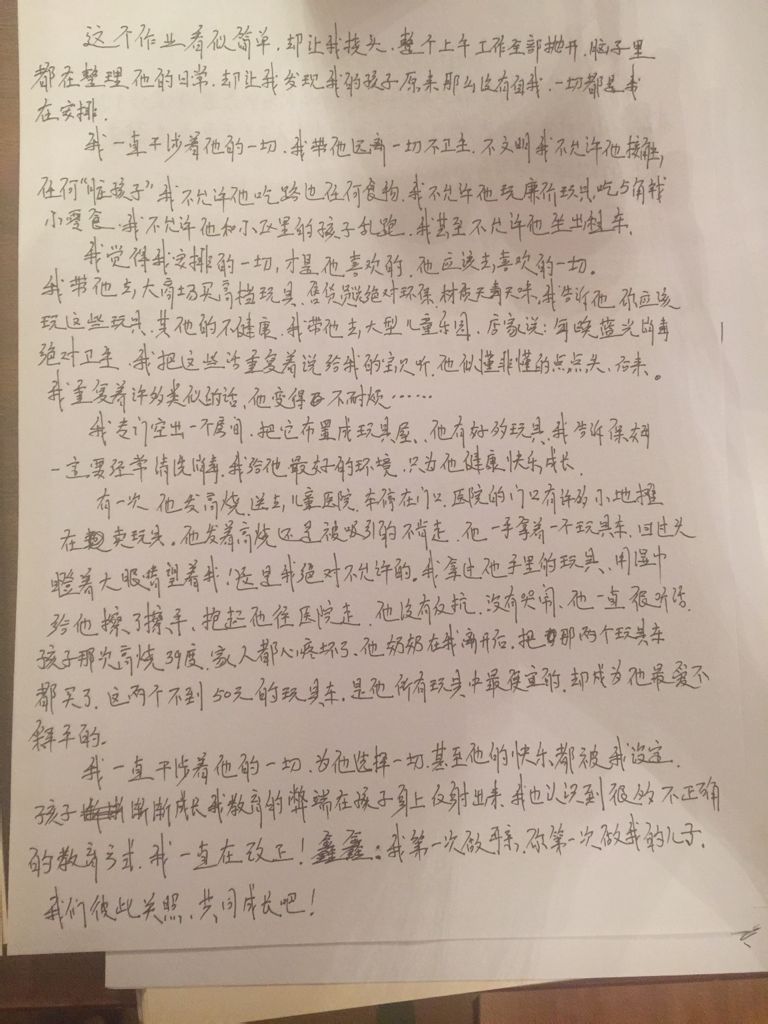 这个作业看似简单，却让我挠头，整个上午工作全部抛开，脑子里
都在整理他的日常，却让我发现我的孩子原来那么没有自我，一切都是我
在安排.
我一直干涉着他的一切，我带他远离一切不卫生、不文明我不允许他接触，
任何“脏孩子”我不允许他吃路边任何食物，我不允许他玩廉价玩具，吃5角钱
小零食，我不允许他和小区里的孩子乱跑，我甚至不允许他坐出租车.
我觉得我安排的一切，才是他喜欢的，他应该去喜欢的一切。
我带他去大商场买高档玩具，售货员说绝对环保，材质无毒无味，我告诉他，你应该
玩这些玩具，其他的不健康，我带他去大型儿童乐园，店家说：每晚蓝光消毒
绝对卫生，我把这些话重复着说给我的宝贝听，他似懂非懂的点点头，后来。
我重复着许多类似的话，他变得不耐烦……
我专门空出一个房间，把它布置成玩具屋、他有好多玩具，我告诉保姆
一定要经常清洗消毒，我给他最好的环境，只为他健康快乐成长.
有一次，他发高烧，送去儿童医院，车停在门口，医院的门口有许多小地摊
在卖玩具，他发着高烧还是被吸引的不肯走，他一手拿着一个玩具车，回过头
瞪着大眼睛望着我！这是我绝对不允许的，我拿过他手里的玩具、用湿巾
给他擦了擦手，抱起他往医院走，他没有反抗，没有哭闹，他一直很听话，
孩子那次高烧39度，家人都心疼坏了，他奶奶在我离开后，把那两个玩具车
都买了，这两个不到50元的玩具车，是他所有玩具中最便宜的，却成为他最爱不
释手的.
我一直干涉着他的一切，为他选择一切，甚至他的快乐都被我设定，
孩子渐渐成长我教育的弊端在孩子身上反射出来，我也认识到很多不正确
的教育方式，我一直在改正！鑫鑫：我第一次做母亲，你第一次做我的儿子，
我们彼此关照，共同成长吧！